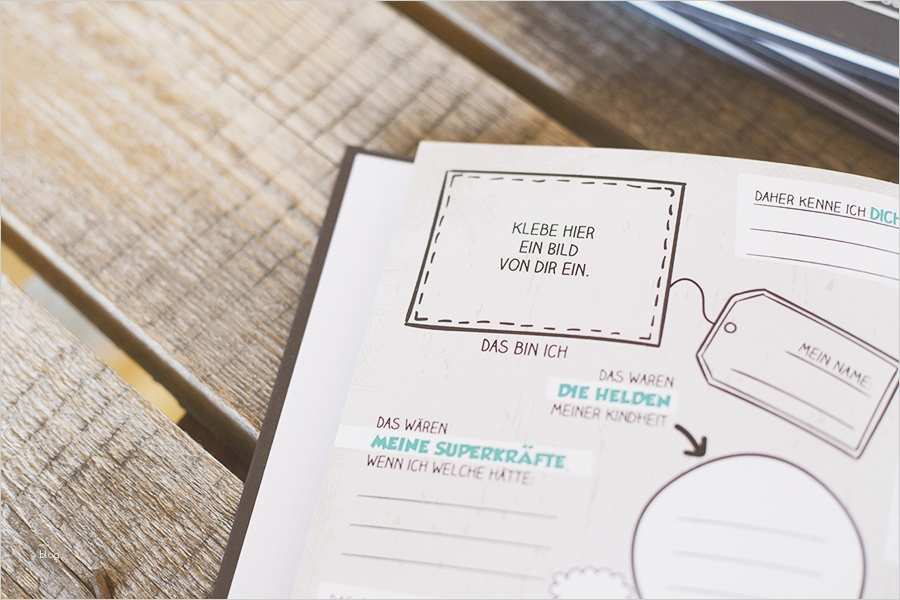 DAHER KENNE ICH DICH
KLEBE HIER
EIN BILD
VON DIR EIN.
DAS BIN ICH
MEIN NAME:
DAS WAREN
DIE HELDEN
MEINER KINDHEIT
DAS WÄREN
MEINE SUPERKRÄFTE
WENN ICH WELCHE HÄTTE:
blog